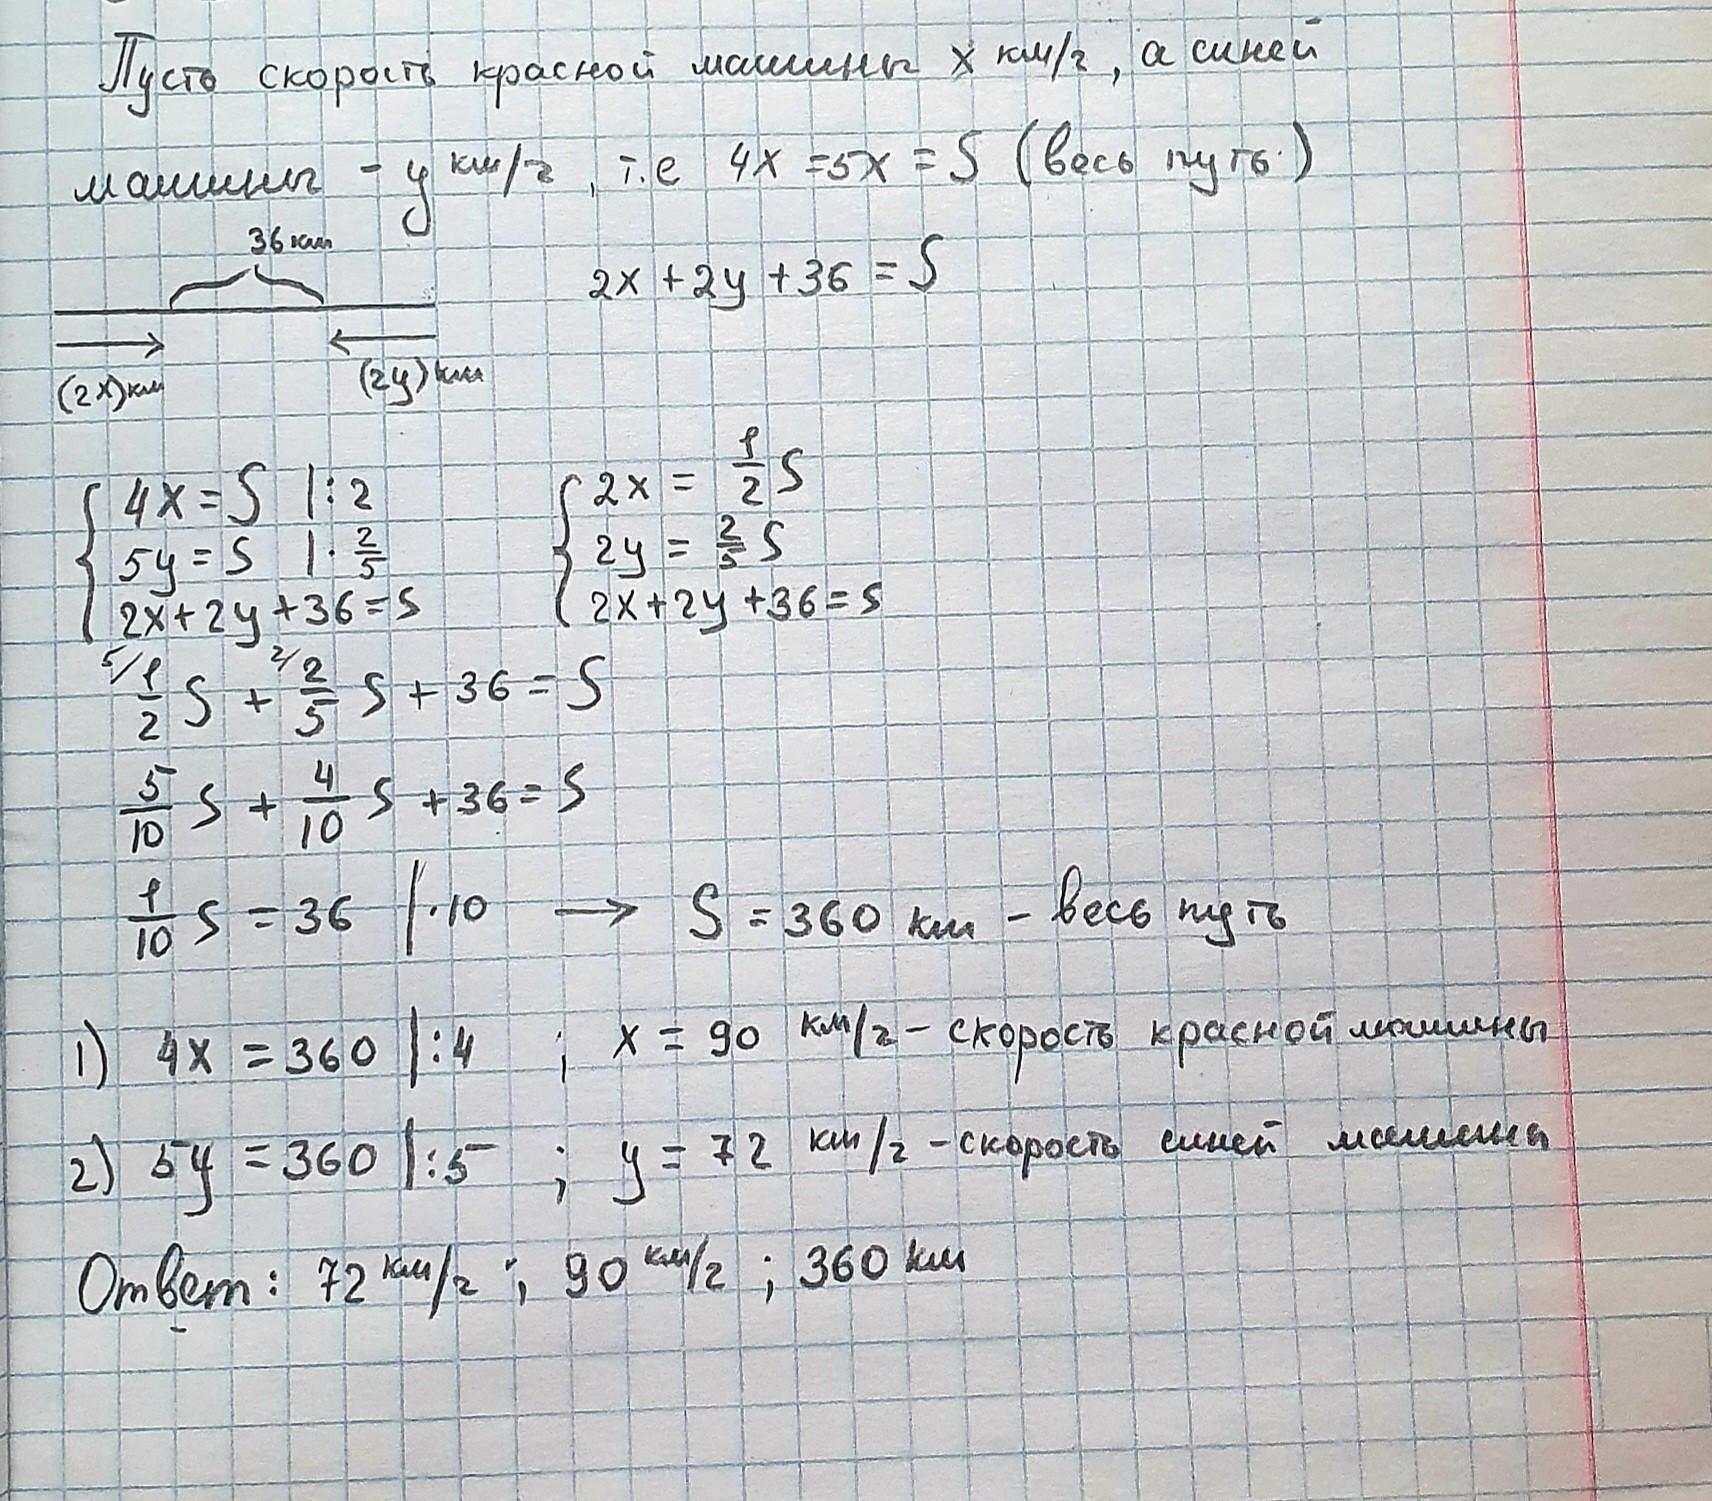 Пусть скорость красной машины x км/ч, а синей
машины - y км/ч, т.е 4x = 5x = S (весь путь)
36 км
2x + 2y + 36 = S
(2x) км (2y) км
4x = S |:2 2x = 1/2 S
5y = S |· 2/5 2y = 2/5 S
2x + 2y + 36 = S 2x + 2y + 36 = S
5/ 1/2 S + 2/ 2/5 S + 36 = S
5/10 S + 4/10 S + 36 = S
1/10 S = 36 |·10 → S = 360 км - весь путь
1) 4x = 360 |:4 ; x = 90 км/ч - скорость красной машины
2) 5y = 360 |:5 ; y = 72 км/ч - скорость синей машины
Ответ: 72 км/ч ; 90 км/ч ; 360 км